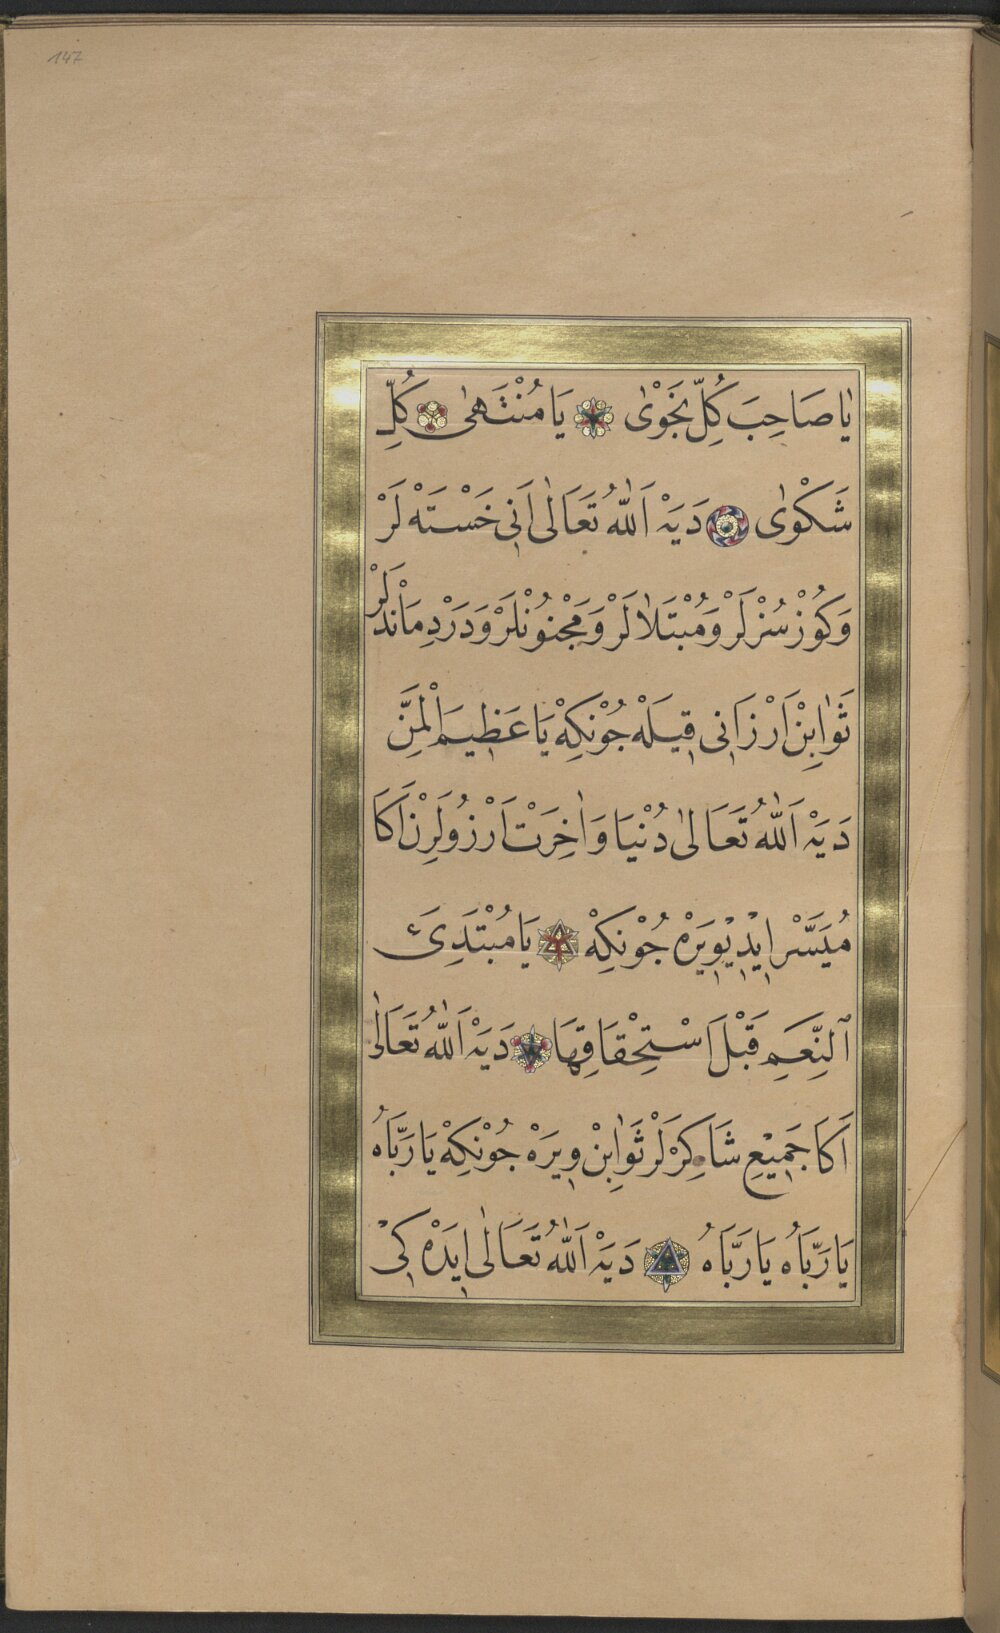 147
يَا صَاحِبَ كُلِّ نَجْوٰى يَا مُنْتَهٰى كُلِّ
شَكْوٰى دَيَهْ اَللّٰهُ تَعَالٰى اَنِى خَسْتَهْ لَرْ
وَكُوزْسُزْلَرْ وَمُبْتَلَالَرْ وَمَجْنُونْلَرْ وَدَرْدِمَانْدَلَرْ
ثَوَابِنْ اَرْزَانِى قِيلَهْ جُونْكِهْ يَا عَظِيمَ الْمَنِّ
دَيَهْ اَللّٰهُ تَعَالٰى دُنْيَا وَاٰخِرَتْ اَرْزُولَرِنْ اَكَا
مُيَسَّرْ ايِدِيوِيَرَهْ جُونْكِهْ يَا مُبْتَدِئَ
اَلنِّعَمِ قَبْلَ اَسْتِحْقَاقِهَا دَيَهْ اَللّٰهُ تَعَالٰى
اَكَا جَمِيعِ شَاكِرْلَرْ ثَوَابِنْ وِيرَهْ جُونْكِهْ يَا رَبَّاهُ
يَا رَبَّاهُ يَا رَبَّاهُ دَيَهْ اَللّٰهُ تَعَالٰى ايِدَهْ كِى